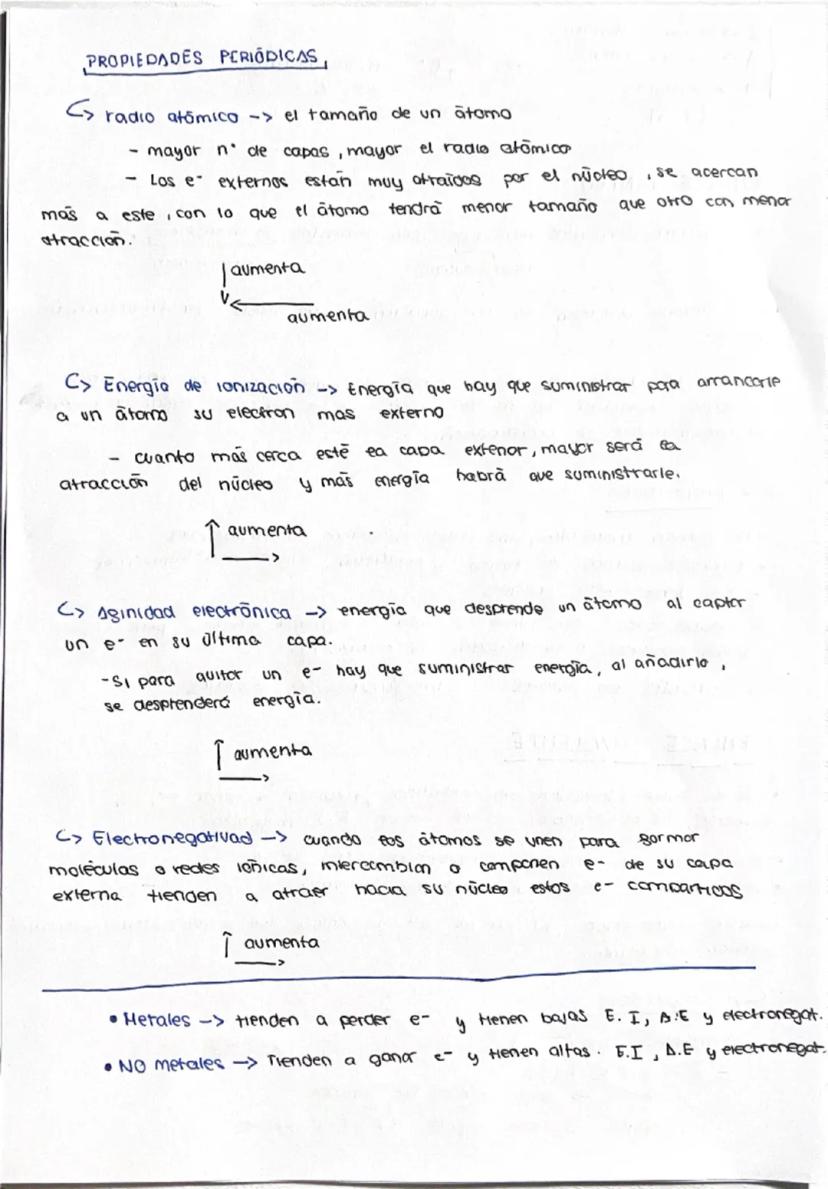 PROPIEDADES PERIÓDICAS
↳ radio atómico -> el tamaño de un átomo
- mayor nº de capas, mayor el radio atómico
- Los e⁻ externos están muy atraídos por el núcleo, se acercan
más a este, con lo que el átomo tendrá menor tamaño que otro con menor
atracción.
↓ aumenta
← aumenta
↳ Energía de ionización -> Energía que hay que suministrar para arrancarle
a un átomo su electrón más externo
- cuanto más cerca esté la capa exterior, mayor será la
atracción del núcleo y más energía habrá que suministrarle.
↑ aumenta
→
↳ Afinidad electrónica -> energía que desprende un átomo al captar
un e⁻ en su última capa.
- Si para quitar un e⁻ hay que suministrar energía, al añadirlo,
se desprenderá energía.
↑ aumenta
→
↳ Electronegativad -> cuando los átomos se unen para formar
moléculas o redes iónicas, intercambian o componen e⁻ de su capa
externa tienden a atraer hacia su núcleo estos e⁻ compartidos
↑ aumenta
→
• Metales -> tienden a perder e⁻ y tienen bajas E.I, A.E y electronegat.
• NO metales -> Tienden a ganar e⁻ y tienen altas. E.I, A.E y electronegat.